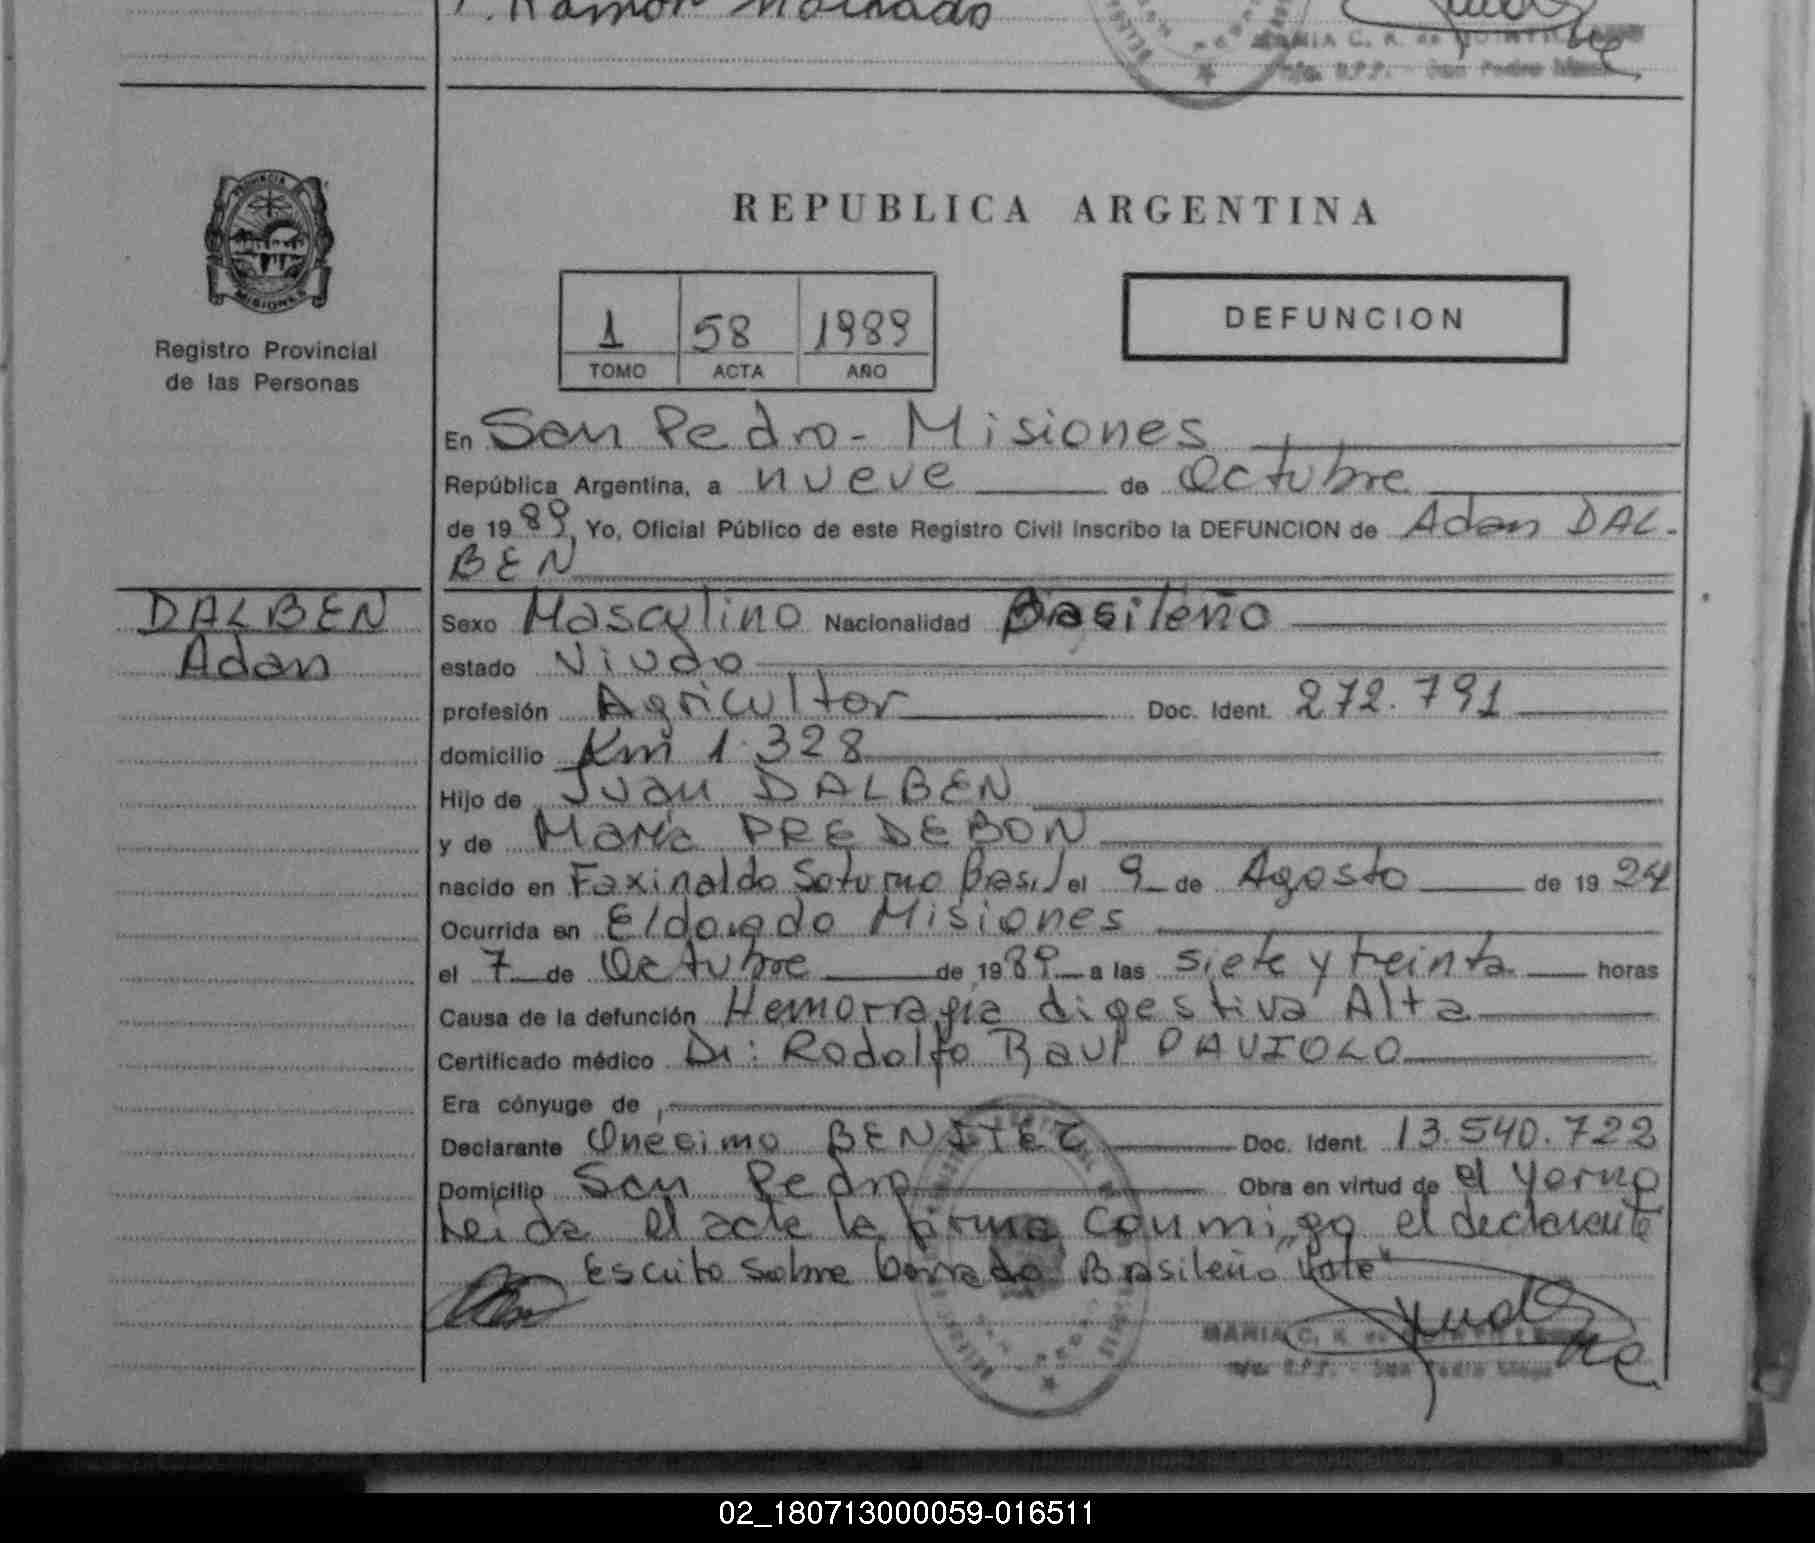 Ramón Machado
MARIA C. R. de
San Pedro
PROVINCIA
MISIONES
Registro Provincial
de las Personas
REPUBLICA ARGENTINA
1 58 1989
TOMO ACTA AÑO
DEFUNCION
En San Pedro - Misiones
República Argentina, a nueve de Octubre
de 1989, Yo, Oficial Público de este Registro Civil inscribo la DEFUNCION de Adan DAL-
BEN
DALBEN
Adan
Sexo Masculino Nacionalidad Brasileño
estado Viudo
profesión Agricultor Doc. Ident. 272.791
domicilio Km 1.328
Hijo de Juan DALBEN
y de María PREDEBON
nacido en Faxinaldo Soturno Brasil el 9 de Agosto de 1924
Ocurrida en Eldorado Misiones
el 7 de Octubre de 1989 a las siete y treinta horas
Causa de la defunción Hemorragia digestiva Alta
Certificado médico Dr: Rodolfo Raul PAVIOLO
Era cónyuge de
Declarante Onésimo BENITEZ Doc. Ident. 13.540.722
Domicilio San Pedro Obra en virtud de el Yerno
Leida el acta la firma conmigo el declarante
Escrito sobre borrado "Brasileño Vale"
MARIA C. R. de
San Pedro
02_180713000059-016511